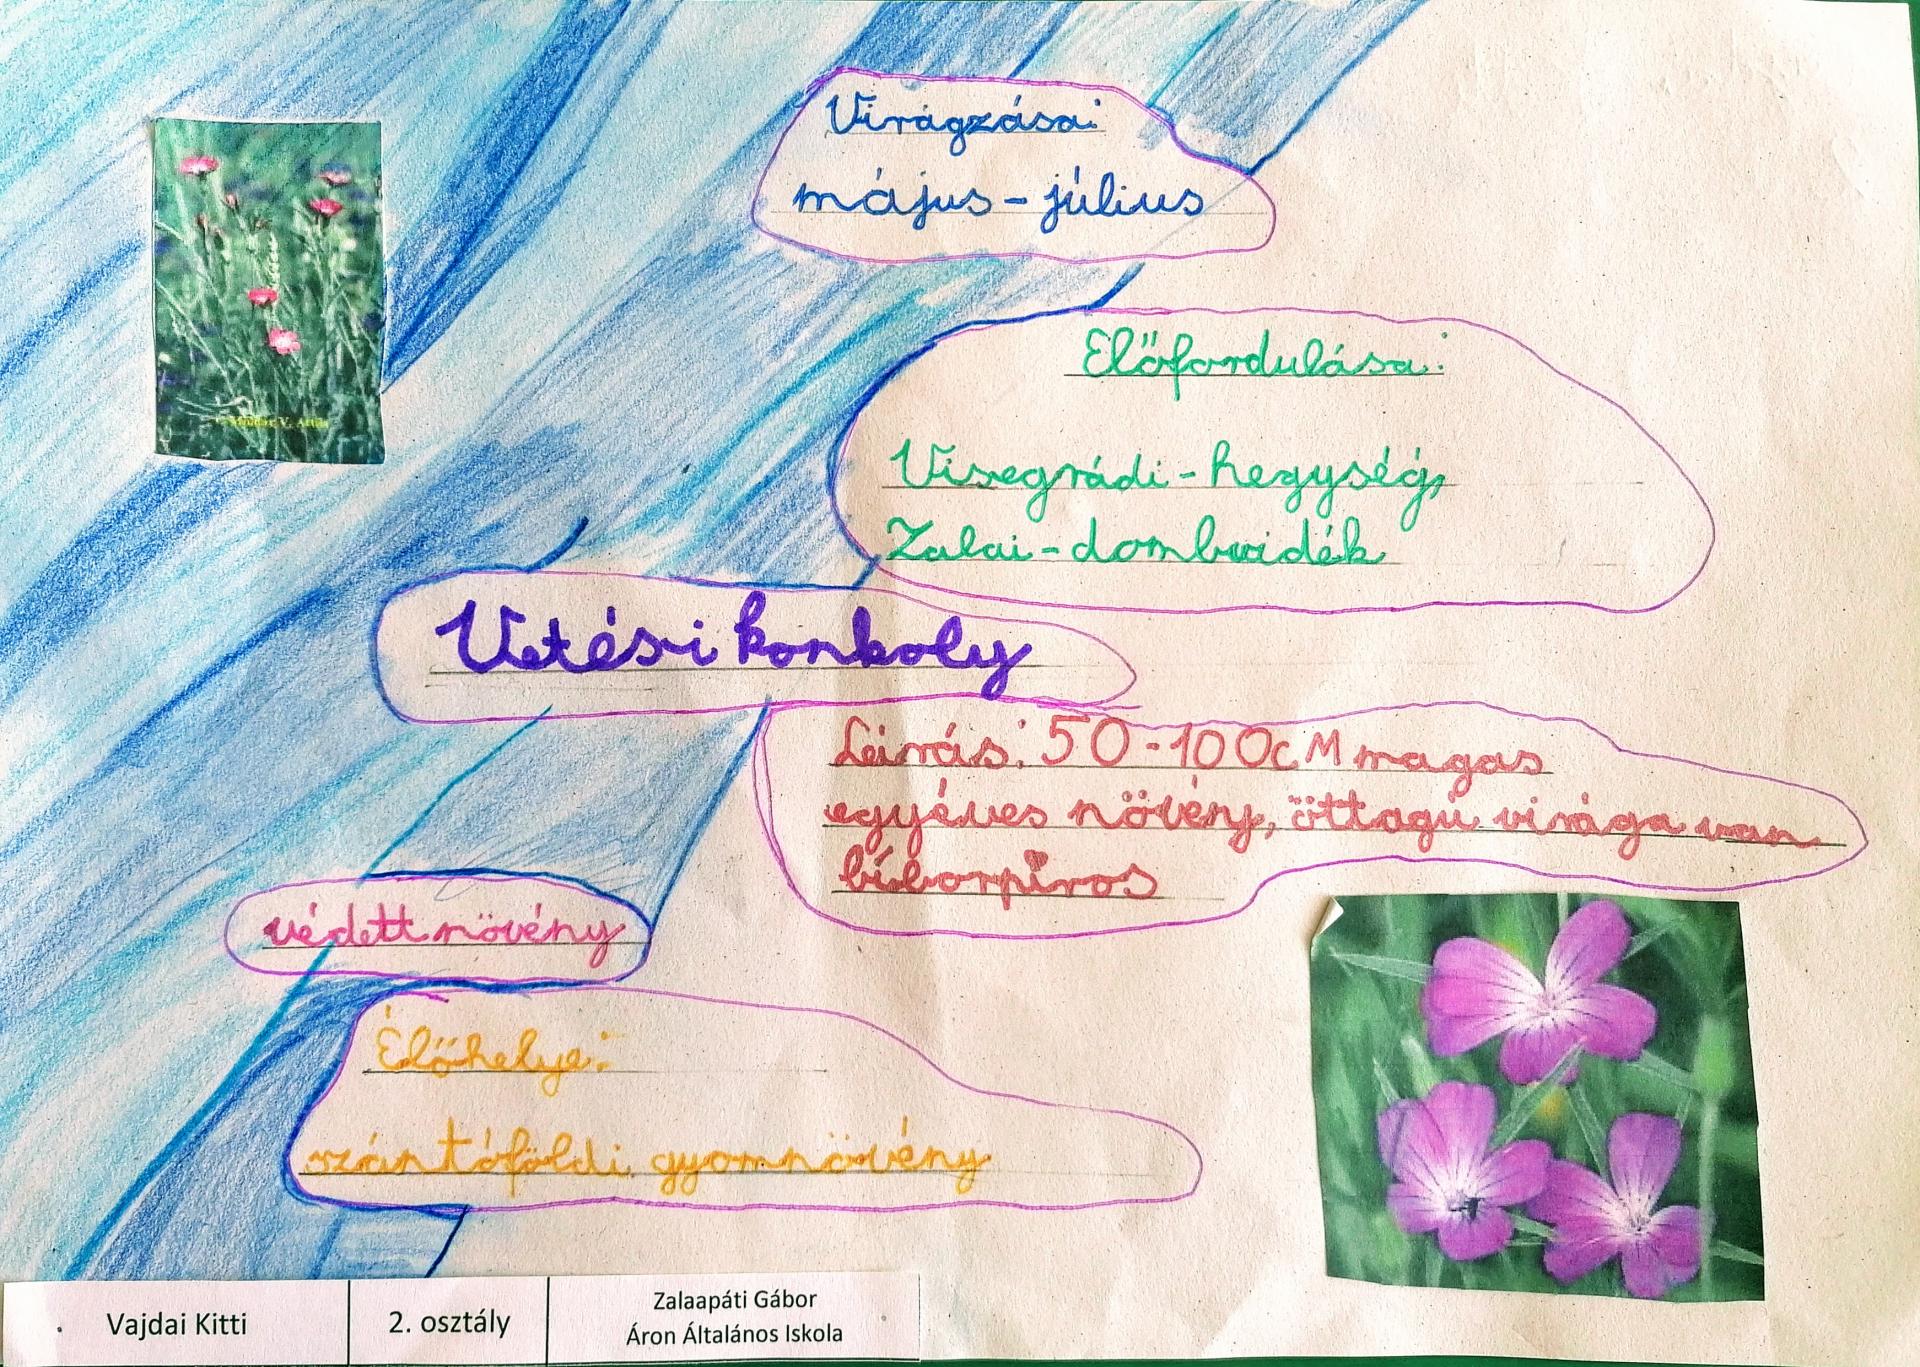 Virágzása:
május - július
Előfordulása:
Visegrádi - hegység,
Zalai - dombvidék
Vetési konkoly
Leirás: 50-100cM magas
egyéves növény, öttagú virága van
bíborpiros
védett növény
Élőhelye:
szántóföldi gyomnövény
Vajdai Kitti
2. osztály
Zalaapáti Gábor
Áron Általános Iskola